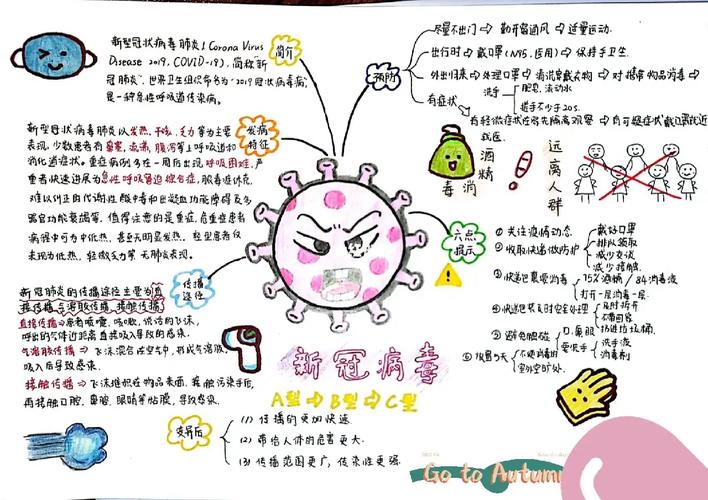 新型冠状病毒肺炎(Corona Virus
Disease 2019, COVID-19),简称"新
冠肺炎",世界卫生组织命名为"2019冠状病毒病"
是一种急性呼吸道传染病。
简介
新型冠状病毒肺炎以发热、干咳、乏力等为主要
表现,少数患者有鼻塞、流涕、腹泻等上呼吸道和
消化道症状。重症病例多在一周后出现呼吸困难,严
重者快速进展为急性呼吸窘迫综合征、脓毒症休克、
难以纠正的代谢性酸中毒和出凝血功能障碍及多
器官功能衰竭等。值得注意的是重症、危重症患者
病程中可为中低热,甚至无明显发热。轻型患者仅
表现为低热,轻微乏力等,无肺炎表现。
发病
特征
新冠肺炎的传播途径主要为直
接传播,气溶胶传播,接触传播
直接传播⇒患者喷嚏、咳嗽、说话的飞沫,
呼出的气体近距离直接吸入导致的感染。
气溶胶传播⇒飞沫混合在空气中,形成气溶胶,
吸入后导致感染。
接触传播⇒飞沫沉积在物品表面,接触污染手后,
再接触口腔、鼻腔、眼睛等粘膜,导致感染。
传播
途径
预防
尽量不出门→勤开窗通风→适量运动.
出行时→戴口罩(N95,医用)→保持手卫生.
外出归来→处理口罩→清洗
对携带物品消毒
洗手
肥皂、流动水
搓手不少于20s.
有症状
酒精
消毒
远离人群
六点
提示
① 关注疫情动态
② 收取快递做防护
戴好口罩
排队领取
减少交谈
减少接触
③ 快递包裹要消毒
75%酒精/84消毒液
打开一层消毒一层.
④
及时拆开
不带回家
扔进垃圾桶.
⑤ 避免触碰
口、鼻、眼
要洗手
洗手液
消毒剂
⑥
室外空旷处.
新冠病毒
A型⇒B型⇒C型
变异后
(1) 传播的更加快速.
(2) 带给人体的危害更大.
(3) 传播范围更广,传染性更强.
Go to Autumn